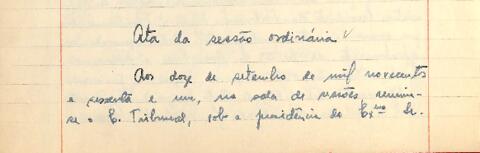 Ata da sessão ordinária
Aos doze de setembro de mil novecentos
e sessenta e um, na sala de sessões reuniu-
se o E. Tribunal, sob a presidência do Exmo Sr.